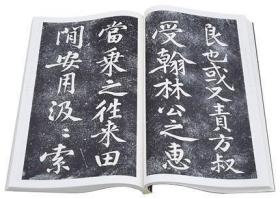 良也或又責方叔
受翰林公之惠
當乗之往来田
間安用汲〻索